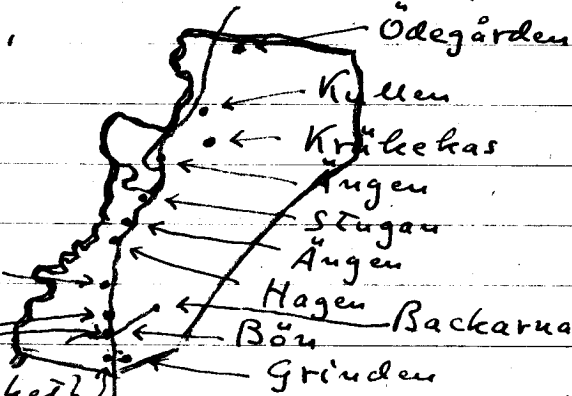 Ödegården
Kullen
Kråkekas
Ängen
Stugan
Ängen
Hagen
Backarna
Bön
Grinden